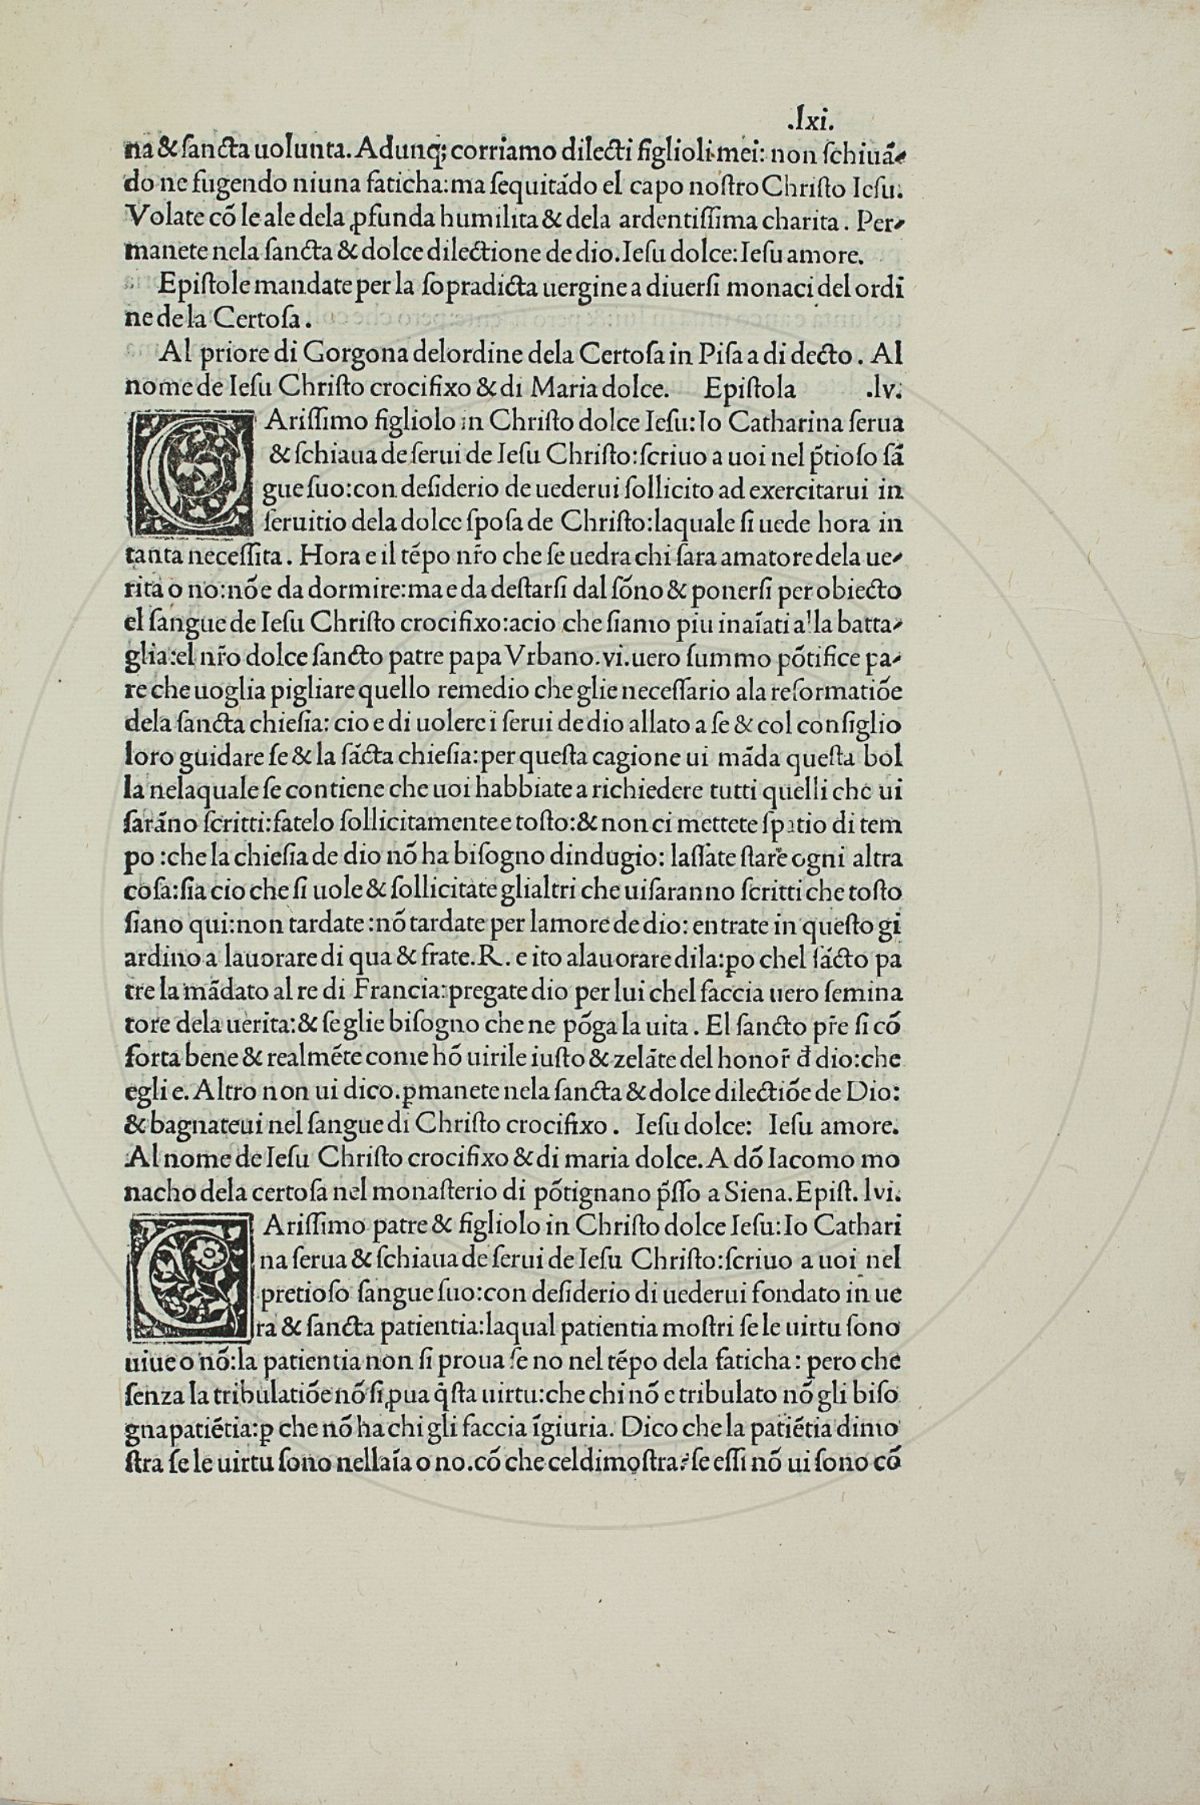 .lxi.
na & sancta uolunta. Adunq; corriamo dilecti figlioli mei: non schiuā-
do ne fugendo niuna faticha: ma sequitādo el capo nostro Christo Iesu.
Volate cō le ale dela ꝓfunda humilita & dela ardentissima charita. Per-
manete nela sancta & dolce dilectione de dio. Iesu dolce: Iesu amore.
Epistole mandate per la sopradicta uergine a diuersi monaci del ordi
ne de la Certosa.
Al priore di Gorgona delordine dela Certosa in Pisa a di decto. Al
nome de Iesu Christo crocifixo & di Maria dolce. Epistola .lv.
CArissimo figliolo in Christo dolce Iesu: Io Catharina serua
& schiaua de serui de Iesu Christo: scriuo a uoi nel p̄tioso sā
gue suo: con desiderio de uederui sollicito ad exercitarui in
seruitio dela dolce sposa de Christo: laquale si uede hora in
tanta necessita. Hora e il tēpo nr̄o che se uedra chi sara amatore dela ue-
rita o no: nō e da dormire: ma e da destarsi dal sōno & ponersi per obiecto
el sangue de Iesu Christo crocifixo: acio che siamo piu inaīati alla batta-
glia: el nr̄o dolce sancto patre papa Vrbano. vi. uero summo pōtifice pa-
re che uoglia pigliare quello remedio che glie necessario ala reformatiōe
dela sancta chiesia: cio e di uolere i serui de dio allato a se & col consiglio
loro guidare se & la sācta chiesia: per questa cagione ui māda questa bol
la nelaquale se contiene che uoi habbiate a richiedere tutti quelli che ui
sarāno scritti: fatelo sollicitamente e tosto: & non ci mettete spatio di tem
po: che la chiesia de dio nō ha bisogno dindugio: lassate stare ogni altra
cosa: sia cio che si uole & sollicitate glialtri che ui saranno scritti che tosto
siano qui: non tardate: nō tardate per lamore de dio: entrate in questo gi
ardino a lauorare di qua & frate. R. e ito alauorare dila: ꝑo chel sācto pa
tre la mādato al re di Francia: pregate dio per lui chel faccia uero semina
tore dela uerita: & se glie bisogno che ne pōga la uita. El sancto pr̄e si cō
forta bene & realmēte come hō uirile iusto & zelāte del honor̄ đ dio: che
egli e. Altro non ui dico. ꝑmanete nela sancta & dolce dilectiōe de Dio:
& bagnateui nel sangue di Christo crocifixo. Iesu dolce: Iesu amore.
Al nome de Iesu Christo crocifixo & di maria dolce. A dō Iacomo mo
nacho dela certosa nel monasterio di pōtignano p̄sso a Siena. Epist. lvi.
CArissimo patre & figliolo in Christo dolce Iesu: Io Cathari
na serua & schiaua de serui de Iesu Christo: scriuo a uoi nel
pretioso sangue suo: con desiderio di uederui fondato in ue
ra & sancta patientia: laqual patientia mostri se le uirtu sono
uiue o nō: la patientia non si proua se no nel tēpo dela faticha: pero che
senza la tribulatiōe nō si ꝓua q̄sta uirtu: che chi nō e tribulato nō gli biso
gna patiētia: ꝑ che nō ha chi gli faccia īgiuria. Dico che la patiētia dimo
stra se le uirtu sono nellaīa o no. cō che cel dimostra? se essi nō ui sono cō